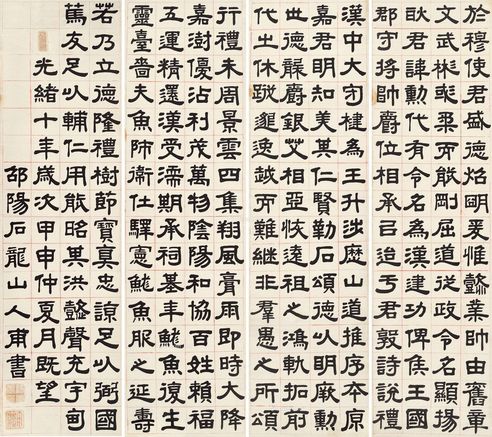 於穆使君盛德焰明爰惟懿業帥由舊章
文武彬彧柔而能剛屈道從政令名顯揚
耿君諱勳代有令名為漢建功俾侯王國
郡守將帥爵位相承以迄于君敦詩說禮
漢中大守楗為王升涉歷山道推序本原
嘉君明知美其仁賢勒石頌德以明厥勳
世德襲爵銀艾相亞恢遠祖之鴻軌拓前
代之休蹤邈逸越而難繼非羣愚之所頌
行禮未周景雲四集翔風膏雨即時大降
嘉澍優沾利茂萬物陰陽和協百姓賴福
五運精還漢受濡期承祠基年魚復生
靈臺嗇夫魚師衛仕驛憲魚服之延壽
若乃立德隆禮樹節寶真忠諒足以弼國
篤友足以輔仁用能昭其洪懿聲充宇宙
光緒十年歲次甲申仲夏月既望
邵陽石龍山人甫書